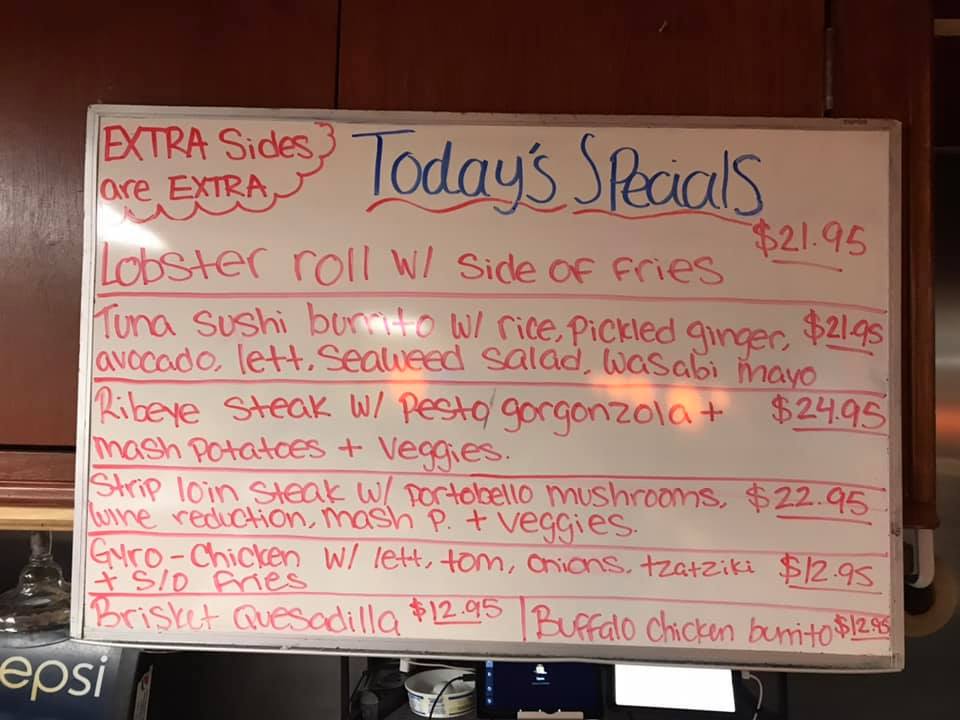 EXTRA Sides
are EXTRA
Today's Specials
$21.95
Lobster roll w/ side of fries
Tuna sushi burrito w/ rice, pickled ginger, $21.95
avocado, lett, seaweed salad, wasabi mayo
Ribeye steak w/ pesto/gorgonzola + $24.95
mash potatoes + veggies.
Strip loin steak w/ portobello mushrooms, $22.95
wine reduction, mash p. + veggies.
Gyro-Chicken w/ lett, tom, onions, tzatziki $12.95
+ S/O fries
Brisket Quesadilla $12.95 | Buffalo chicken burrito $12.95
epsi